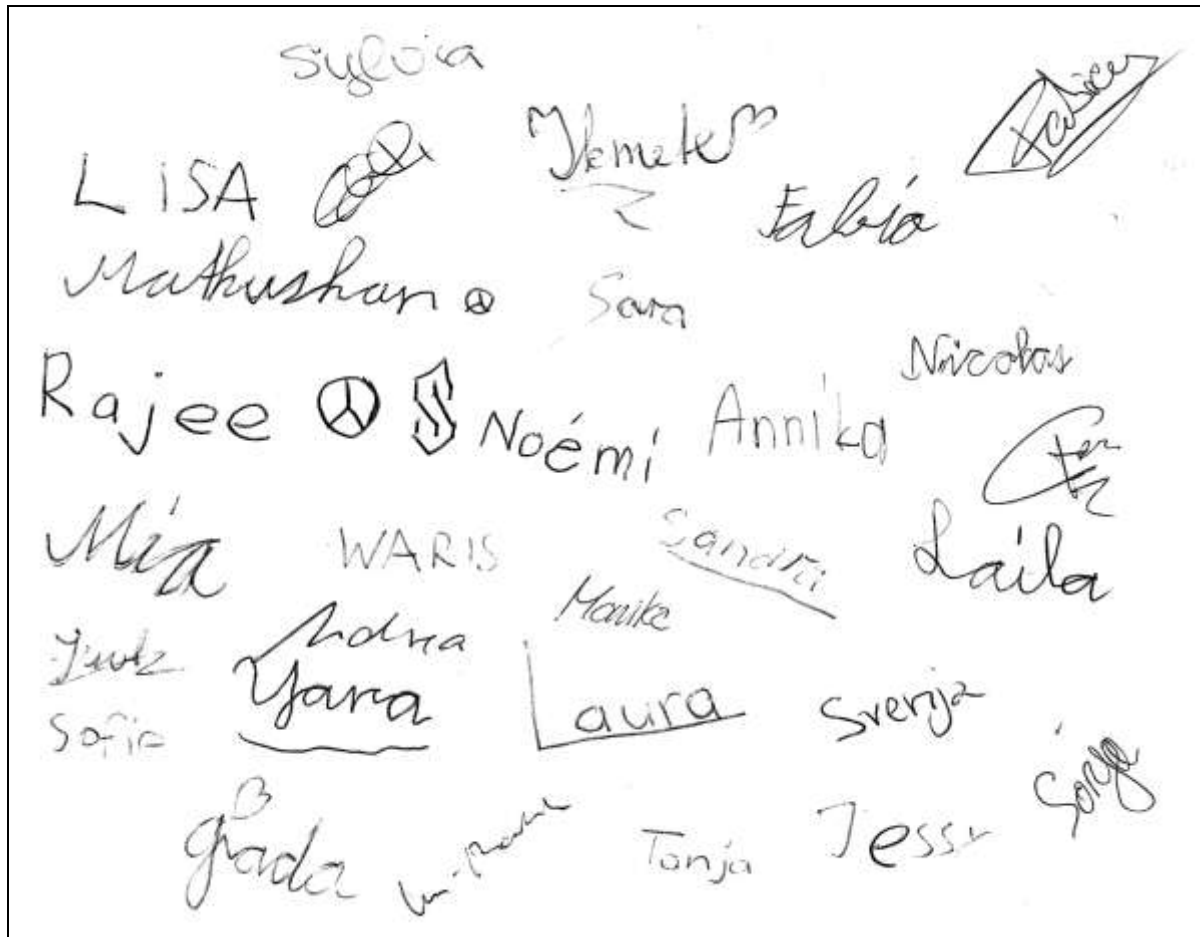 Sylvia
LISA
Fabio
Mathushan
Sara
Nicolas
Rajee
Noémi
Annika
Mia
WARIS
Sandra
Laila
Monika
Andrea
Yara
Laura
Sofia
giada
Tanja
Jessy
Sonja